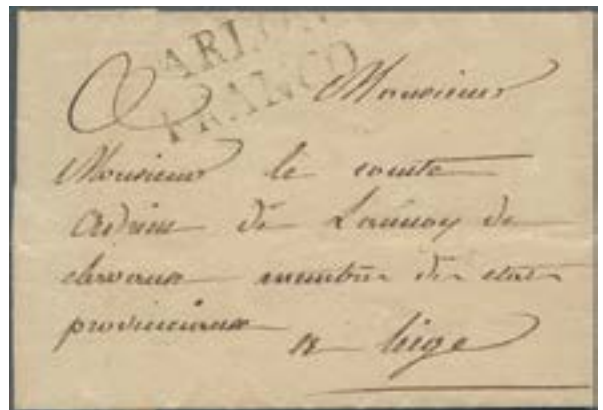 ARLON
FRANCO
A Monsieur
Monsieur le comte
Adrien de Lannoy de
clervaux membre des etats
provinciaux
a liege